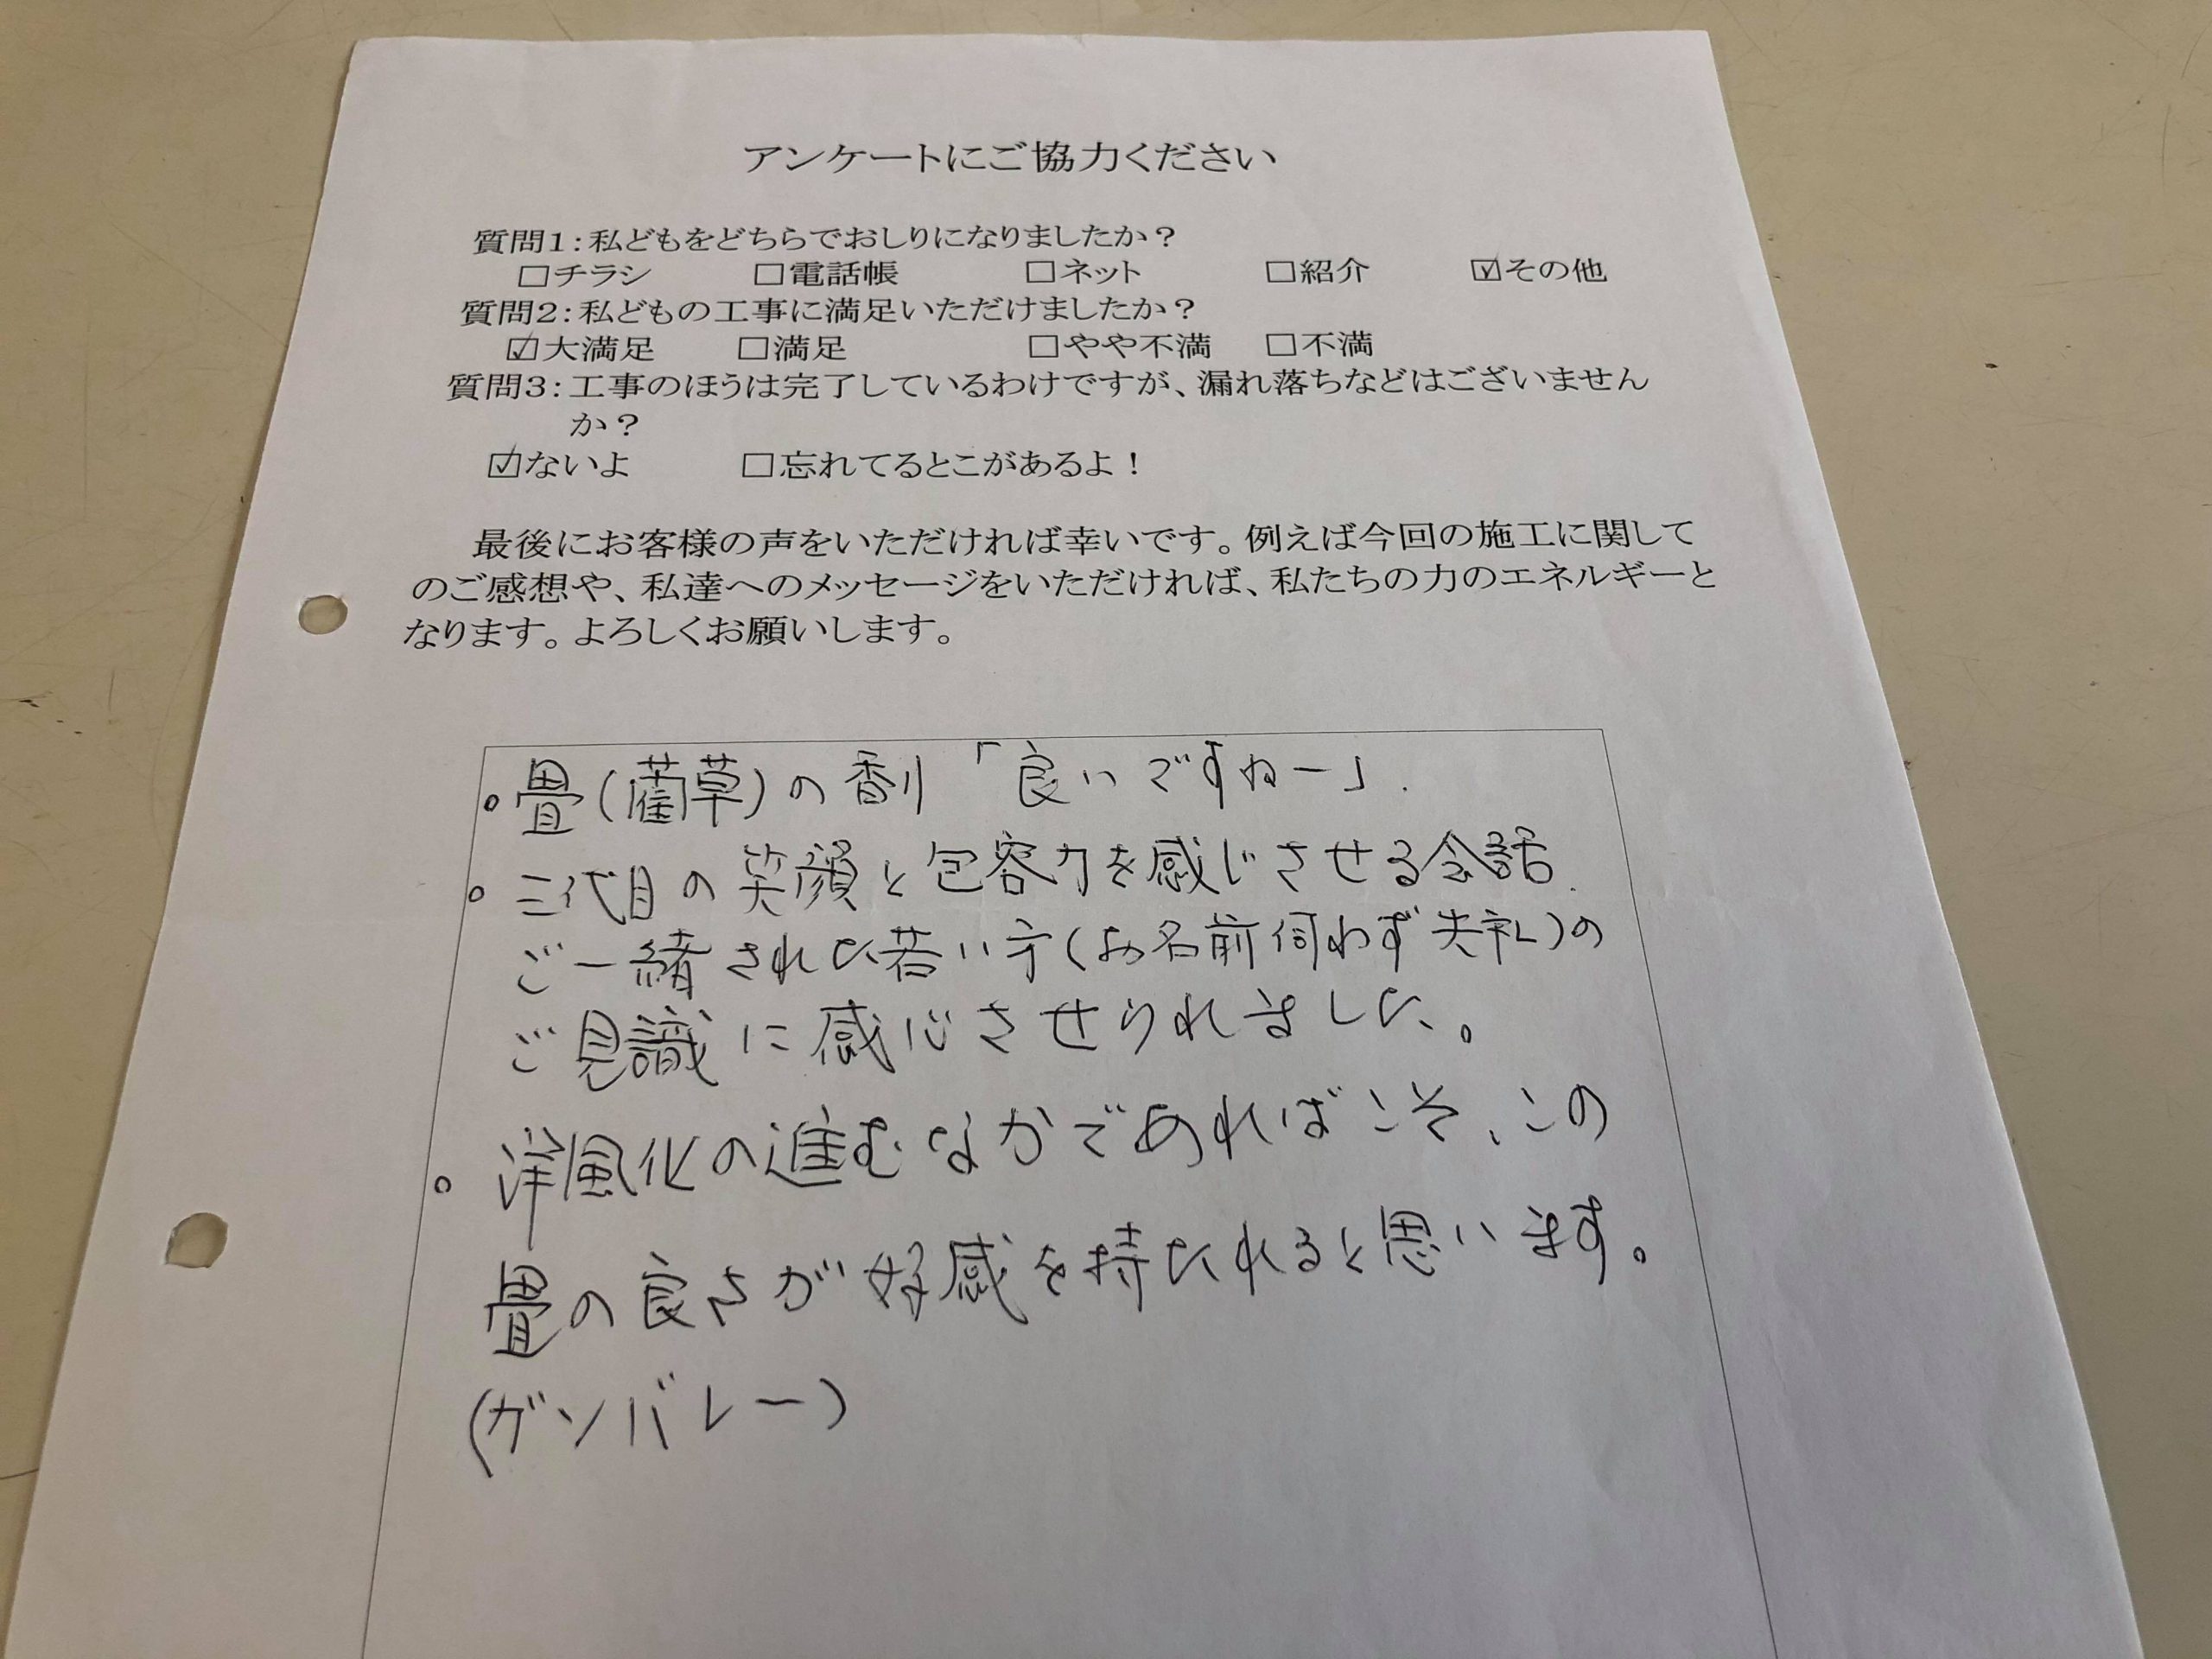 アンケートにご協力ください
質問1:私どもをどちらでおしりになりましたか?
□チラシ □電話帳 □ネット □紹介 ☑その他
質問2:私どもの工事に満足いただけましたか?
☑大満足 □満足 □やや不満 □不満
質問3:工事のほうは完了しているわけですが、漏れ落ちなどはございません
か?
☑ないよ □忘れてるとこがあるよ!
最後にお客様の声をいただければ幸いです。例えば今回の施工に関して
のご感想や、私達へのメッセージをいただければ、私たちの力のエネルギーと
なります。よろしくお願いします。
。畳(藺草)の香り「良いですねー」.
。三代目の笑顔と包容力を感じさせる会話.
ご一緒された若い方(お名前伺わず失礼)の
ご見識に感心させられました。
。洋風化の進むなかであればこそ、この
畳の良さが好感を持たれると思います。
(ガンバレー)